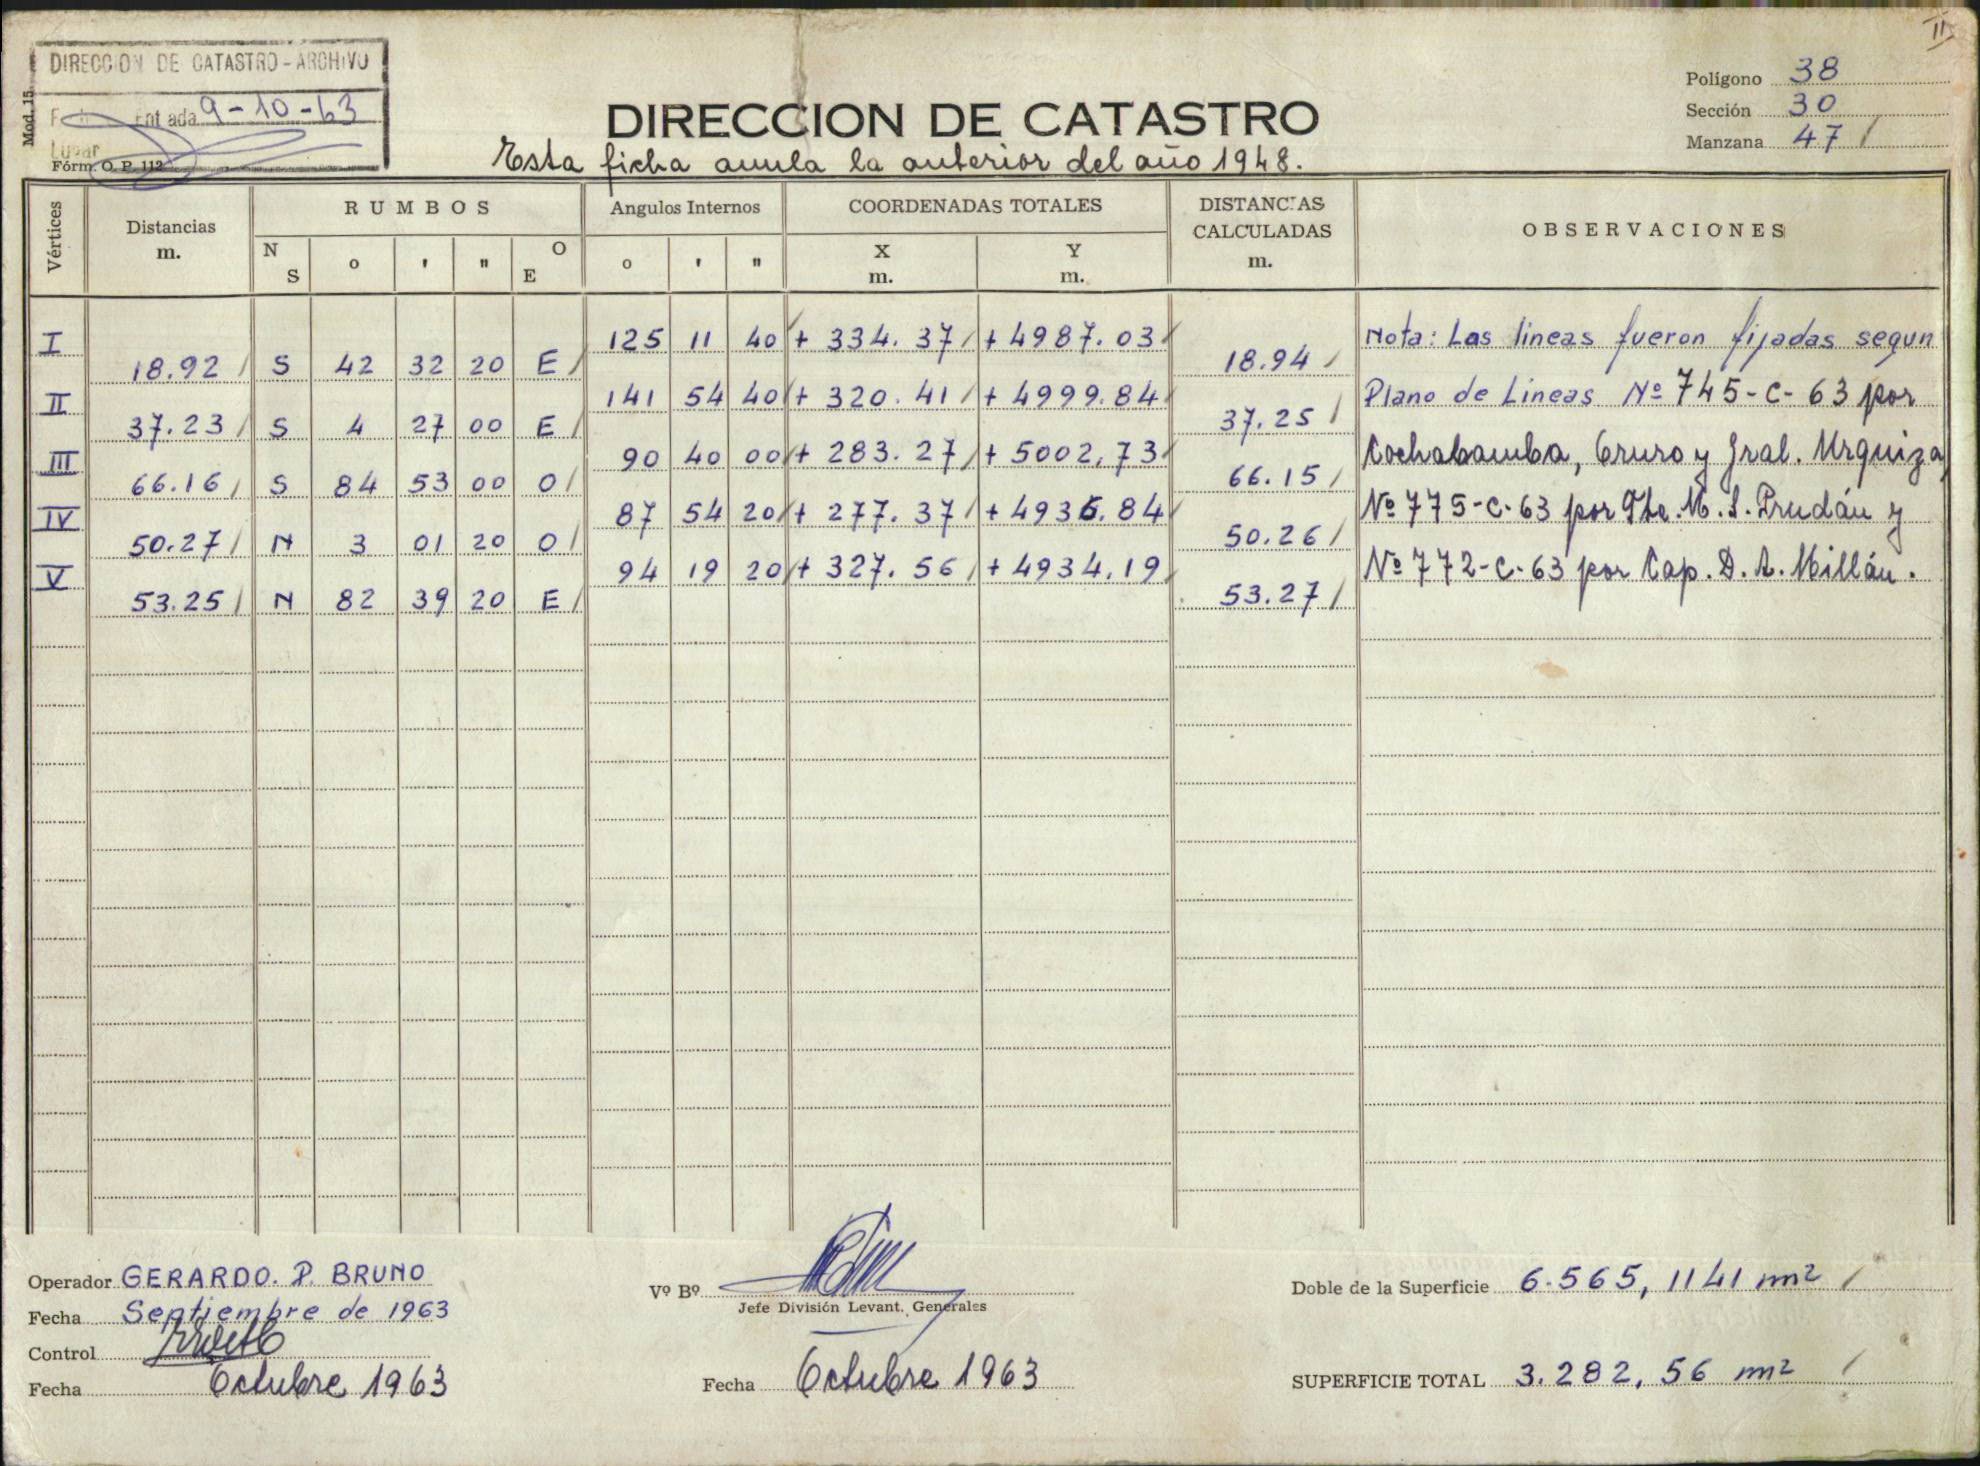 II
DIRECCION DE CATASTRO - ARCHIVO
Entrada 9-10-63
Lugar
Mod. 15
Fórm. O. P. 112
DIRECCION DE CATASTRO
Esta ficha anula la anterior del año 1948.
Polígono 38
Sección 30
Manzana 47 /
Vértices
Distancias
m.
RUMBOS
N
S
o
'
"
O
E
Angulos Internos
o
'
"
COORDENADAS TOTALES
X
m.
Y
m.
DISTANCIAS
CALCULADAS
m.
OBSERVACIONES
I 125 11 40 / + 334.37 / + 4987.03 /
18.92 / S 42 32 20 E / 18.94 /
II 141 54 40 / + 320.41 / + 4999.84 /
37.23 / S 4 27 00 E / 37.25 /
III 90 40 00 / + 283.27 / + 5002,73 /
66.16 / S 84 53 00 O / 66.15 /
IV 87 54 20 / + 277.37 / + 4936.84 /
50.27 / N 3 01 20 O / 50.26 /
V 94 19 20 / + 327.56 / + 4934.19 /
53.25 / N 82 39 20 E / 53.27 /
Nota: Las lineas fueron fijadas segun
Plano de Lineas Nº 745-C-63 por
Cochabamba, Oruro y Gral. Urquiza
Nº 775-C-63 por Tte. M. S. Prudán y
Nº 772-C-63 por Cap. D. A. Millán.
Operador GERARDO. P. BRUNO
Fecha Septiembre de 1963
Control
Fecha Octubre 1963
Vº Bº
Jefe División Levant. Generales
Fecha Octubre 1963
Doble de la Superficie 6.565,1141 m2 /
SUPERFICIE TOTAL 3.282,56 m2 /